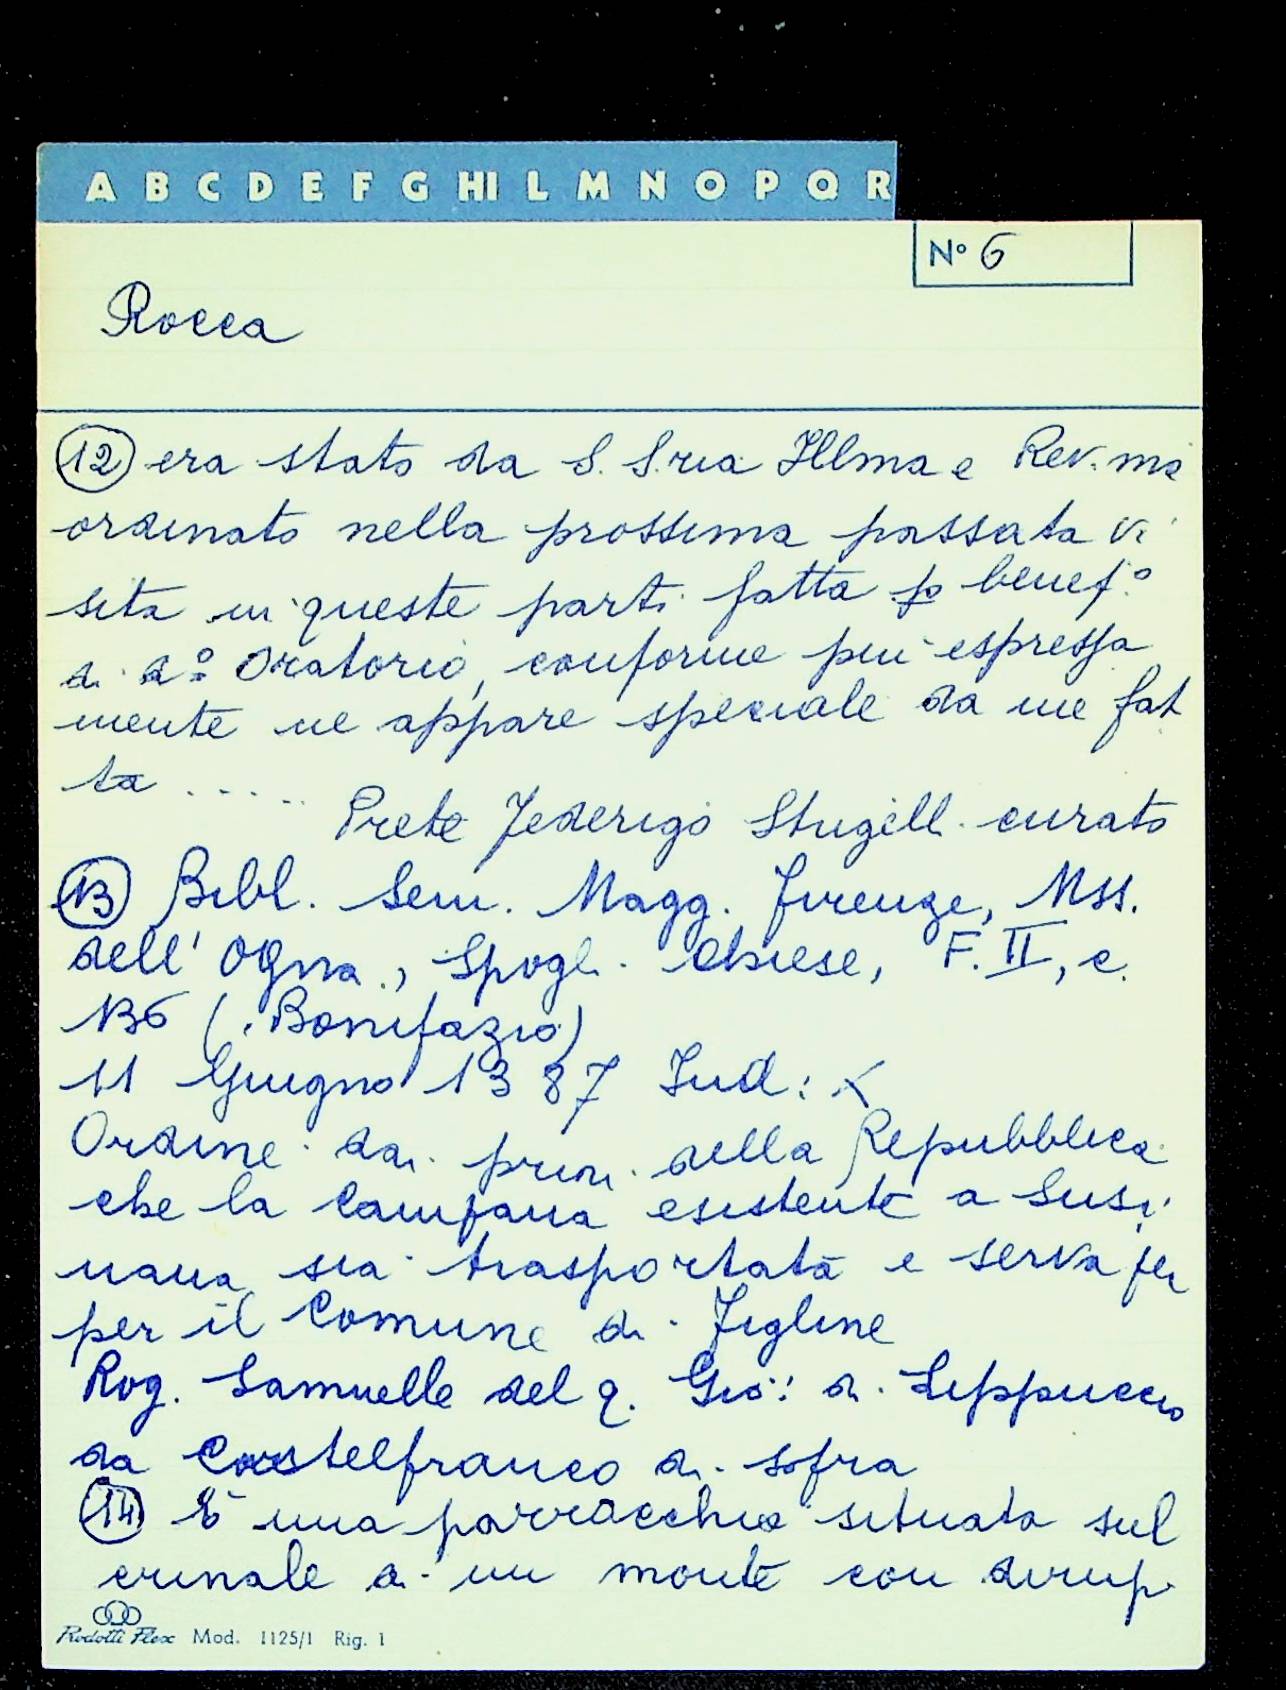 A B C D E F G HI L M N O P Q R
N° 6
Rocca
12 era stato da S. S.ria Illma e Rev.ma
ordinato nella prossima passata vi
sita in queste parti fatta p benef.°
di d.° Oratorio, conforme piu espressa
mente ne appare speciale da me fat
ta .....
Prete Federigo Stugelli curato
13 Bibl. Sem. Magg. Firenze, Mss.
dell' Ogna., Spogli Chiese, F. II, c.
136 (Bonifazio)
11 Giugno 1387 Ind: X
Ordine dai priori della Repubblica
che la Campana esistente a Susi
nana sia trasportata e serva per
per il Comune di Figline
Rog. Samuelle del q. Gio: di Lippuccio
da Castelfranco di sopra
14 È una parracchia situata sul
crinale di un monte con dirupi
Rodotti Flex Mod. 1125/1 Rig. 1